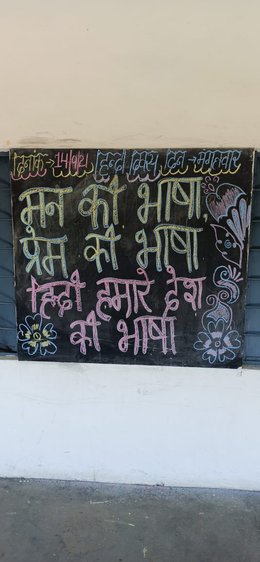 दिनांक → 14/9/21 हिन्दी दिवस दिन → मंगलवार
मन की भाषा,
प्रेम की भाषा
हिंदी हमारे देश
की भाषा